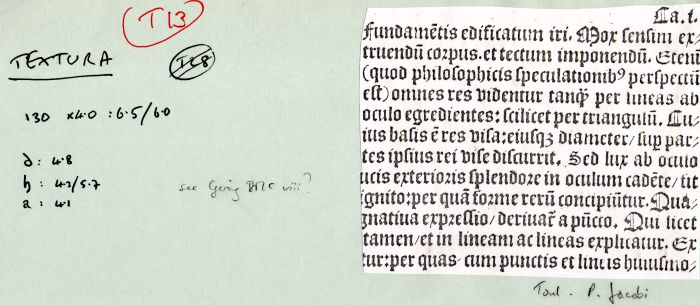 T13
TEXTURA
130 x4.0 : 6.5/6.0
d: 4.8
h: 4.2/5.7
a: 4.1
see Gering BMC viii?
Ca.i.
fundamētis edificatum iri. Mox sensim ex⸗
truendū corpus.et tectum imponendū. Etenī
(quod philosophicis speculationibꝰ perspectū
est) omnes res videntur tanqꝫ per lineas ab
oculo egredientes: scilicet per triangulū. Cu⸗
ius basis ē res visa:eiusqꝫ diameter/sup par⸗
tes ipsius rei vise discurrit. Sed lux ab oculo
ucis exterioris splendore in oculum cadēte/tit
ignito:per quā forme rerū concipiūtur. Qua⸗
gnatiua expressio/deriuat a pūcto. Qui licet
tamen/et in lineam ac lineas explicatur. Ex
tur:per quas cum punctis et lineis huiusmo⸗
Toul. P. Jacobi